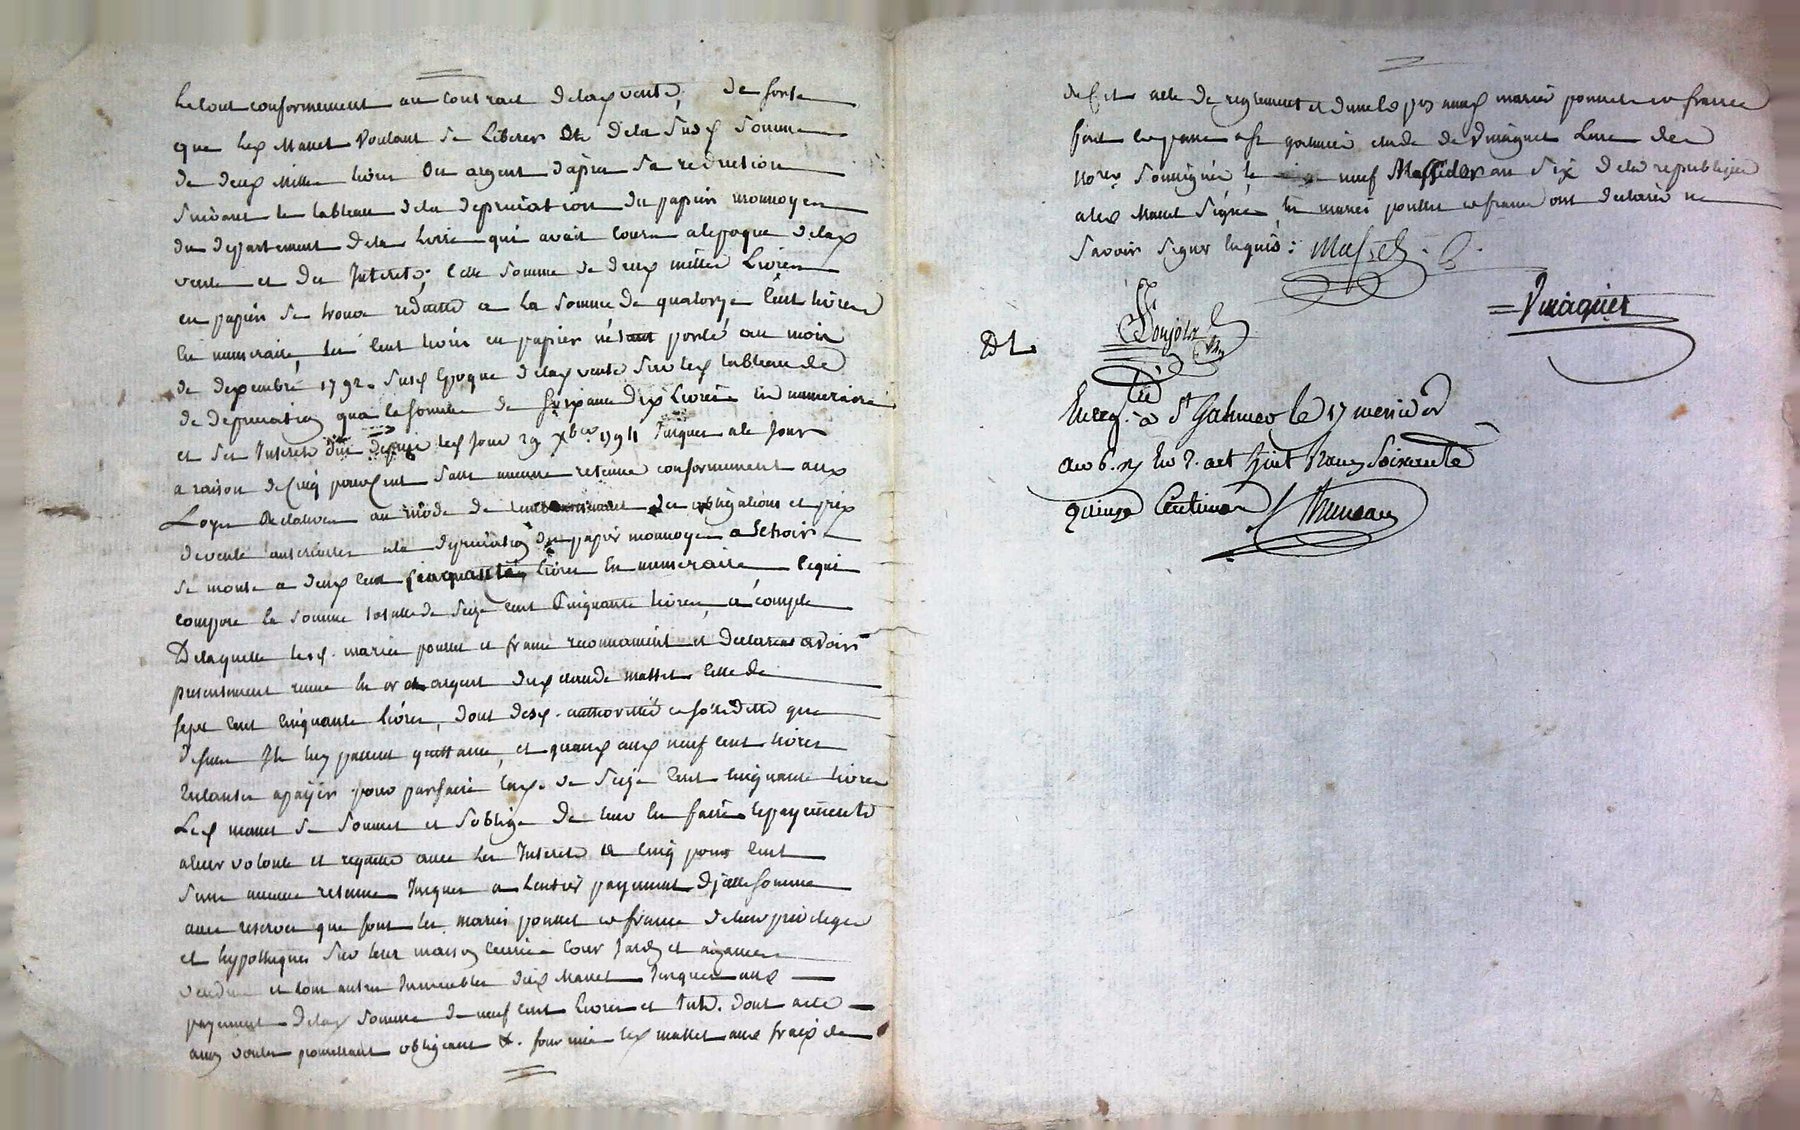 le tout conformement au contrat delad vente, de sorte
que led Masset voulant se liberer de lasusd somme
de deux mille livres en argent d'apres sa reduction
suivant le tableau de la depreciation du papier monnoye
du departement dela Loire qui avait cours a l'epoque delad
vente et des Interets. Cette somme de deux milles Livres
en papier se trouve réduitte a la somme de quatorze Cent livres
en numeraire, les Cent livres en papier n'étant porté au mois
de dexembre 1792. susd Epoque delad vente sur led tableau de
de depreciation qua la somme de soixante dix Livres en numeraire
et les Interets depuis led jour 29 Xbre 1792 jusques a le jour
a raison de cinq pour cent sans aucune retenue conformement aux
Loyx Relatives au mode de des obligations et prix
devente anterieures ala depreciation du papier monnoye a Echoir
se monte a deux Cent cinquante livres En numeraire Cequi
compose la somme totalle de seize Cent Cinquante livres, a compte
Delaquelle lesd. mariés ponset et france reconnaissent et declarent avoir
presentement recue En or et argent dud claude masset Celle de
sept Cent Cinquante livres, dont lad. authorisée
Ils luy passent quittance, et quand aux neuf cent livres
restantes apayer pour parfaire lad. de Seize Cent Cinquante livres
Led masset se soumet et s'oblige De leur En faire lepayement
aleur volonté et requette avec les Interets a Cinq pour Cent
sans aucune retenue jusques a L'entier payement d'jcelle somme
avec reserve que font les mariés ponset et france deleur privilege
et hypotheques sur leur maison Ecurie Cour jardin et aizances
vendus et tout autres Immeubles dud Masset jusques aux
payement delad somme de neuf cent livres et Inté. dont acte
ainsy voulu promettant obligeant &. soumis led masset aux fraix de
de Cet acte de reglement et dans les pds aux mariés ponset et france
fait et passé a st galmier etude de Vinagner L'un des
nores soussignés le neuf Messidor an six dela republique
aled Masset signé, les mariés ponset et france ont declarés ne
savoir signer enquis: Masset.
= Vinagner
Enreg. à St Galmier le 17 messidor
an 6. Soixante
quinze Centimes